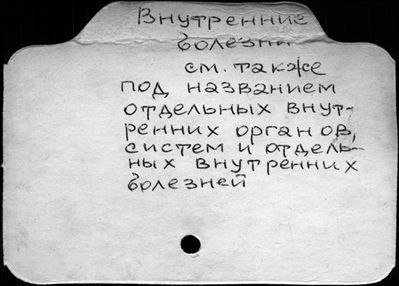 Внутренние
болезни
см. также
под названием
отдельных внут-
ренних органов,
систем и отдель-
ных внутренних
болезней